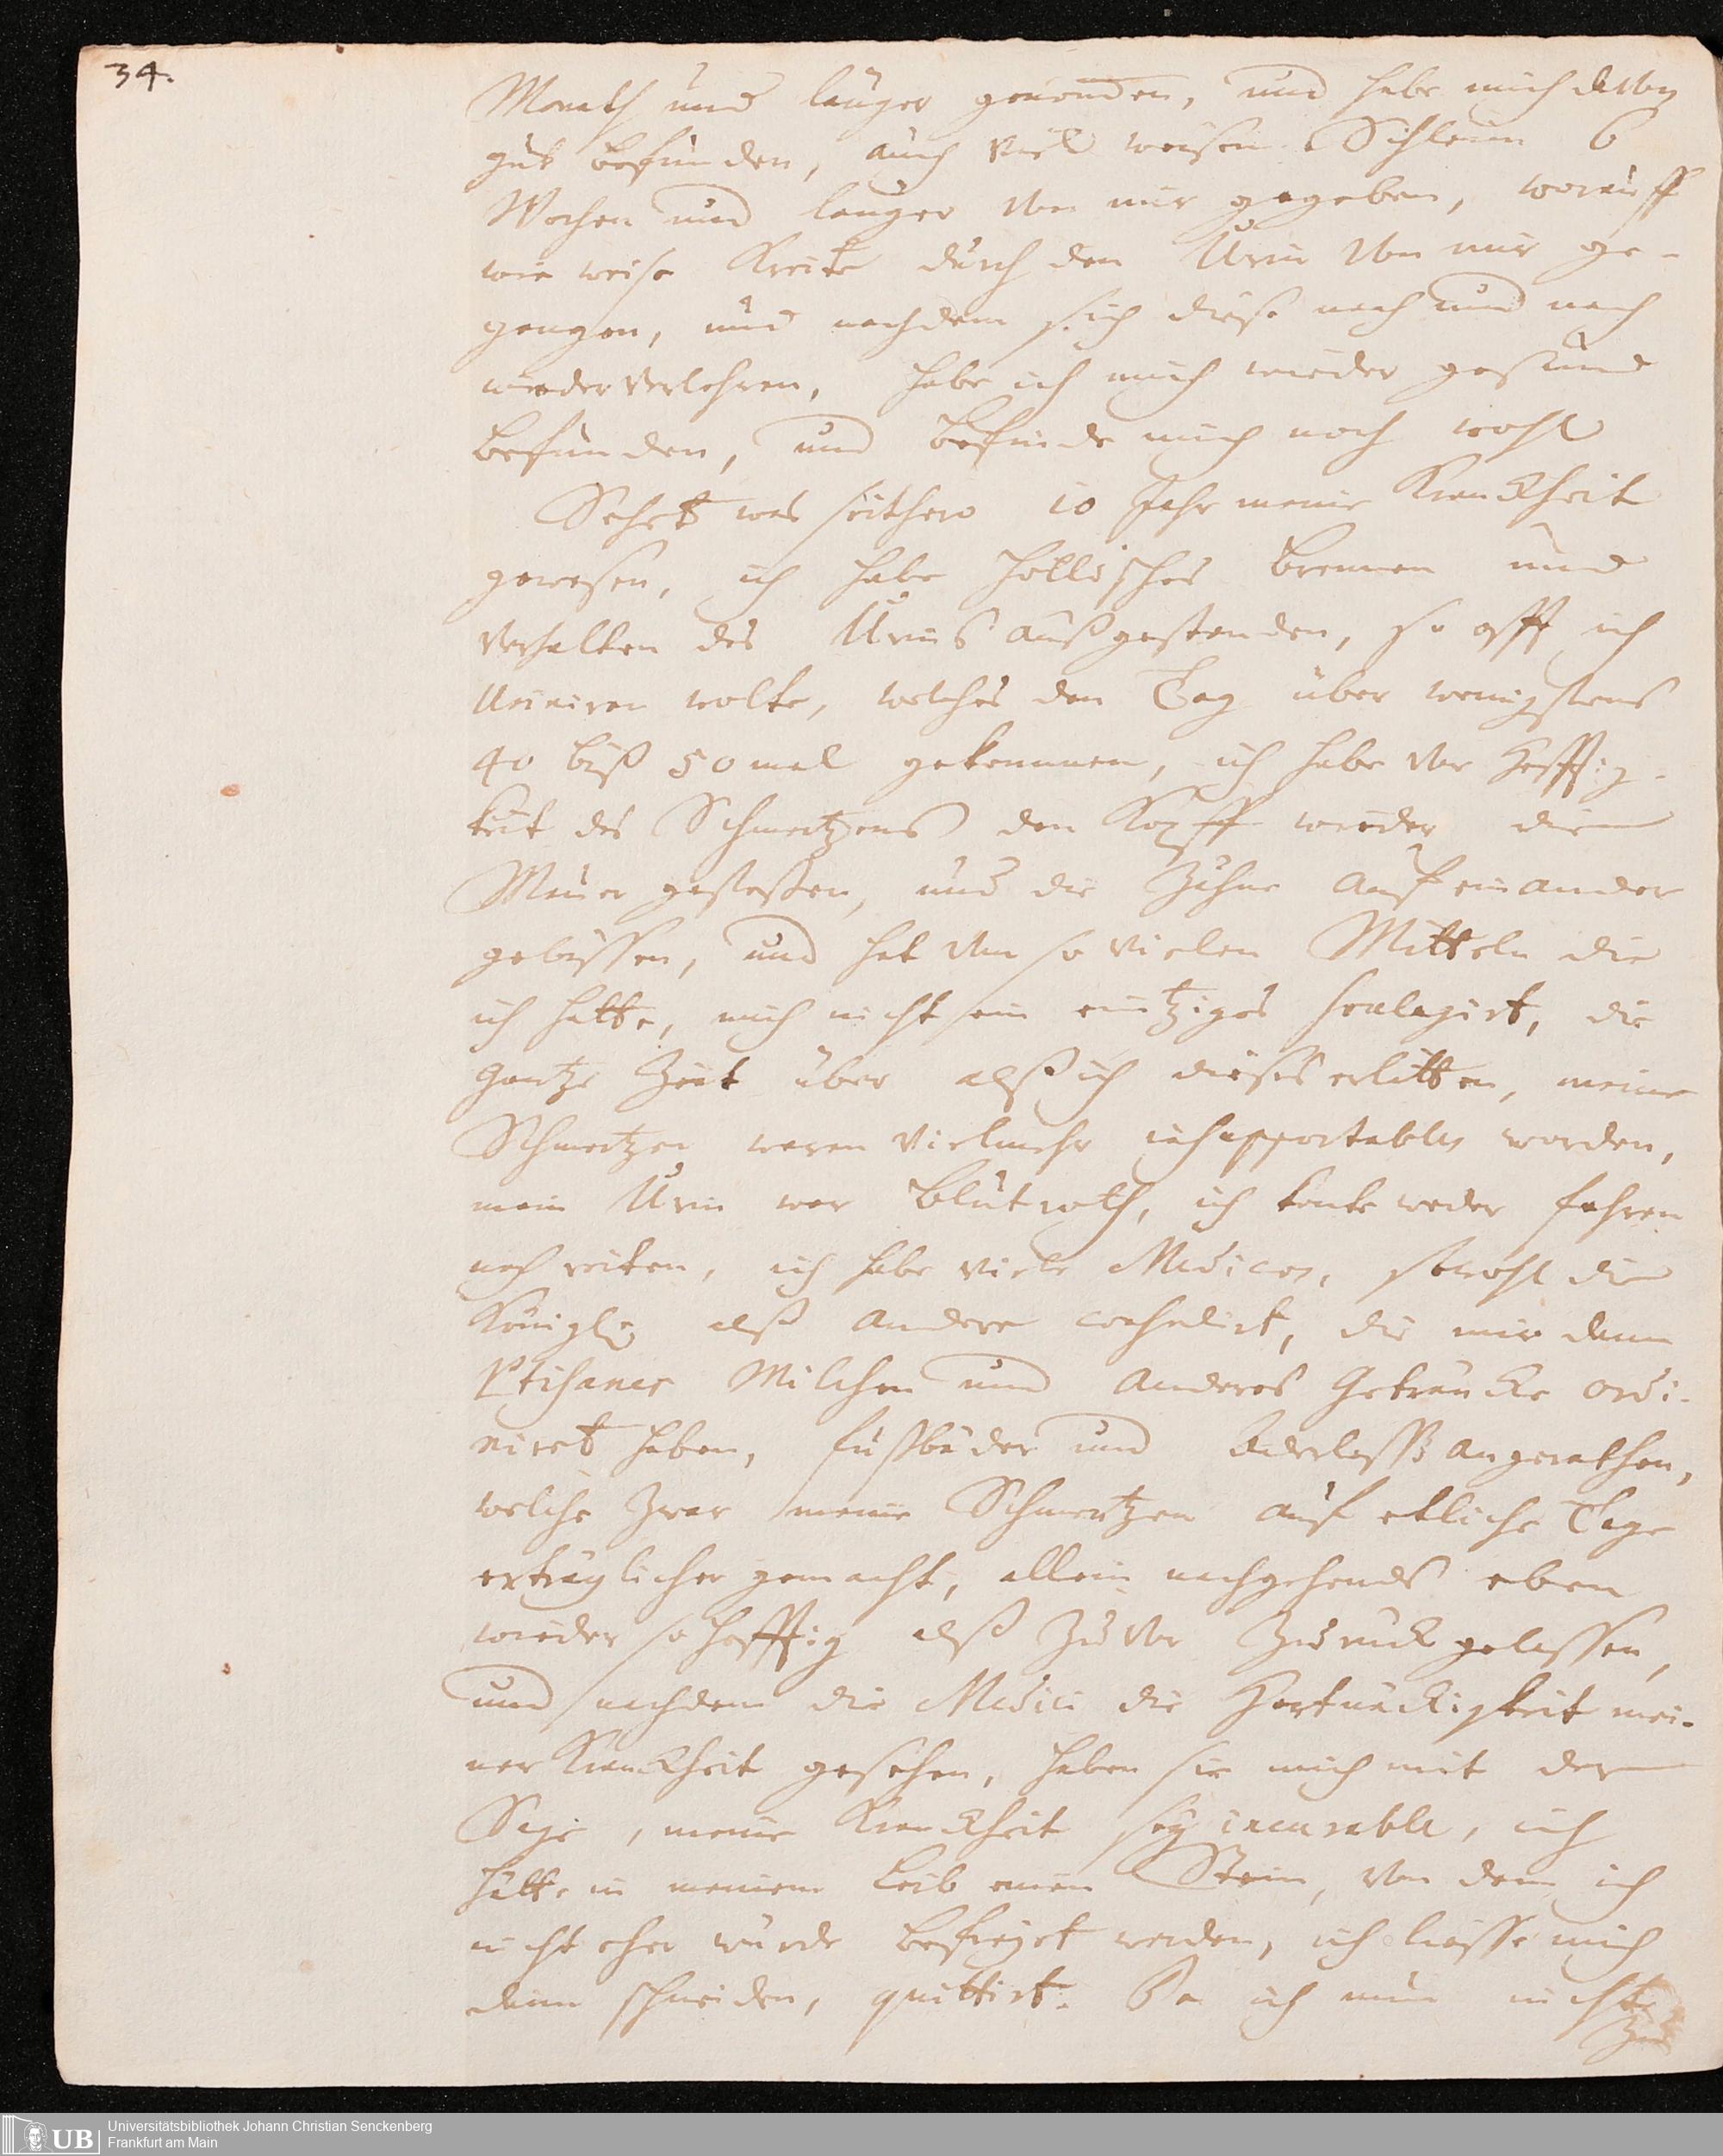 34.
Monath und länger genommen, und habe mich dabey
gut befunden, auch viel weisen Schleim 6
Wochen und langer von mir gegeben, worauff
wie weise Kreite durch den Urin von mir ge-
gangen, und nachdem sich diese nach und nach
wieder verlohren, habe ich mich wieder gesund
befunden, und befinde mich noch wohl
Sehet was seithero 10 Jahr meine Kranckheit
gewesen, ich habe höllisches Brennen und
verhalten des Urins außgestanden, so offt ich
Uriniren wolte, welches den Tag über wenigstens
40 biß 50 mal gekommen, ich habe vor Hefftig-
keit des Schmertzens den Kopff wieder die
Mauer gestoßen, und die Zähne auf einander
gebissen, und hat von so vielen Mitteln die
ich hatte, mich nicht ein eintziges soulagirt, die
gantze Zeit über alß ich dieses erlitten, meine
Schmertzen waren vielmehr insupportables worden,
mein Urin war Blutroth, ich konte weder fahren
noch reiten, ich habe viele Medicos, sowohl die
Königl. alß andere consulirt, die mir dann
Ptisanes Milchen und anderes Geträncke ordi-
niret haben, Fußbäder und Aderlaß angerathen,
welche zwar meine Schmertzen auf etliche Tage
erträglicher gemacht, allein nachgehends eben
wieder so hefftig alß zuvor zuruck gelassen,
und nachdem die Medici die Hartnäckigkeit mei-
ner Kranckheit gesehen, haben sie mich mit dem
Sage, meine Kranckheit sey incurable, ich
hätte in meinem Leib einen Stein, von dem ich
nicht eher würde befreyet werden, ich liesse mich
dann schneiden, quittirt. Da ich nun nicht
Universitätsbibliothek Johann Christian Senckenberg
Frankfurt am Main
UB